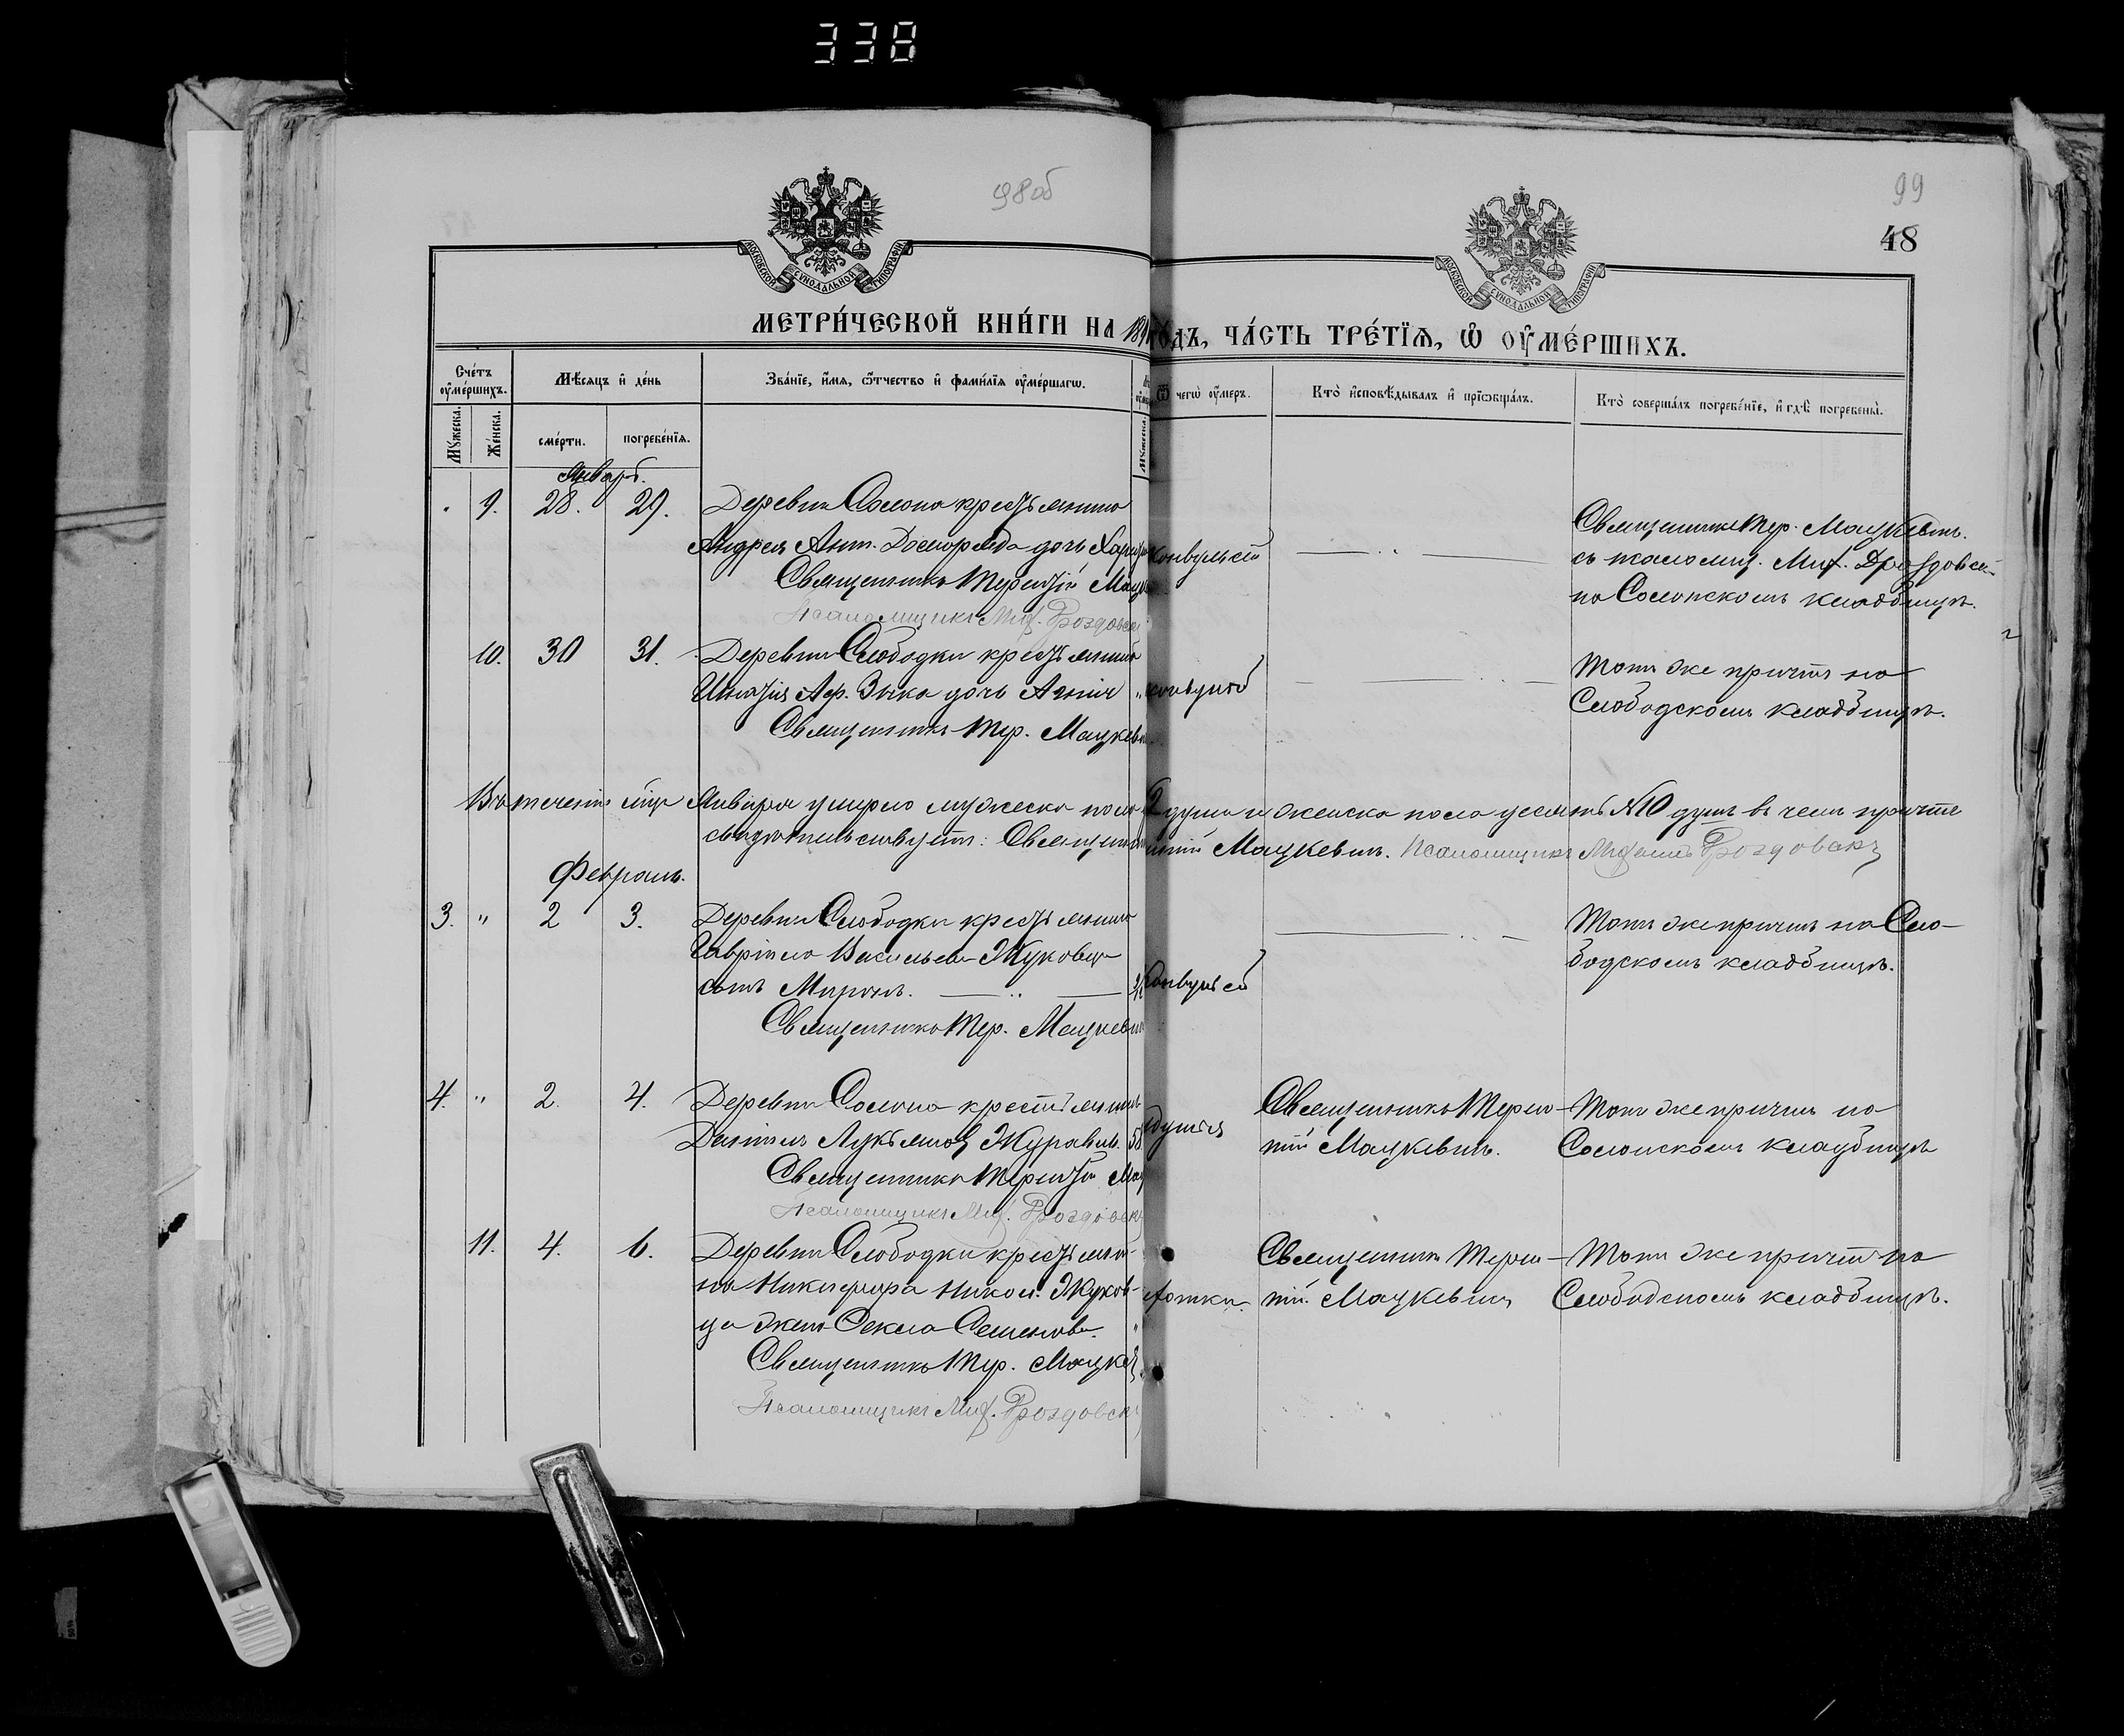 338
98об
99
48
МОСКОВСКОЙ СУНОДАЛЬНОЙ ТИПОГРАФІИ
МОСКОВСКОЙ СУНОДАЛЬНОЙ ТИПОГРАФІИ
МЕТРИ́ЧЕСКОЙ КНИ́ГИ НА 189 ГОДЪ, ЧА́СТЬ ТРЕ́ТЇѦ, Ѡ҆ ОУ҆МЕ́РШИХЪ.
Сче́тъ оу҆ме́ршихъ.
Мꙋ́жеска.
Же́нска.
Мѣ́сѧцъ и҆ де́нь
сме́рти.
погребе́нїѧ.
Зва́нїе, и҆́мѧ, ѻ҆́тчество и҆ фами́лїѧ оу҆ме́ршагѡ.
Мꙋ́жеска.
Ѿ чегѡ̀ оу҆́меръ.
Кто̀ и҆сповѣ́дывалъ и҆ прїѡбща́лъ.
Кто̀ соверша́лъ погребе́нїе, и҆ гдѣ̀ погребены̀.
Январь.
9. 28. 29. Деревни Солона крестьянина
Андрея Ант. дочь
Священникъ Терентій
Псаломщикъ Миф. Дроздовск
конвульсій
Священникъ Тер. Мацкевичъ
съ псаломщ. Миф. Дроздовск.
на Солонскомъ кладбищѣ.
10. 30 31. Деревни Слободки крестьянина
Игнатія Аф. Зыка дочь Агнія
Священникъ Тер. Мацкевич
конвульс
Тотъ же причтъ на
Слободскомъ кладбищѣ.
Въ теченіи м-ца Января умерло мужеска пола 2 души и женска пола десять №10 душъ въ чемъ причтъ
свидѣтельствуетъ: Священникъ Мацкевичъ. Псаломщикъ Дроздовскі
Февраль.
3. " 2 3. Деревни Слободки крестьянина
Гавріила Васильева Жуковца
сынъ Миронъ.
Священникъ Тер. Мацкевич
конвульсій
Тотъ же причтъ на Сло-
бодскомъ кладбищѣ.
4. " 2. 4. Деревни Солона крестьянинъ
Даніилъ Лукьяновъ Журавль.
Священникъ Терентій Мац
Псаломщикъ Миф. Дроздовск
Священникъ Терен-
тій Мацкевичъ.
Тотъ же причтъ на
Солонскомъ кладбищѣ
11. 4. 6. Деревни Слободки крестьяни-
на Никифора Никол. Жуков-
ца жена Фекла Семенова.
Священникъ Тер. Мацкев
Псаломщикъ Миф. Дроздовск
Священникъ Терен-
тій Мацкевичъ
Тотъ же причтъ на
Слободскомъ кладбищѣ.